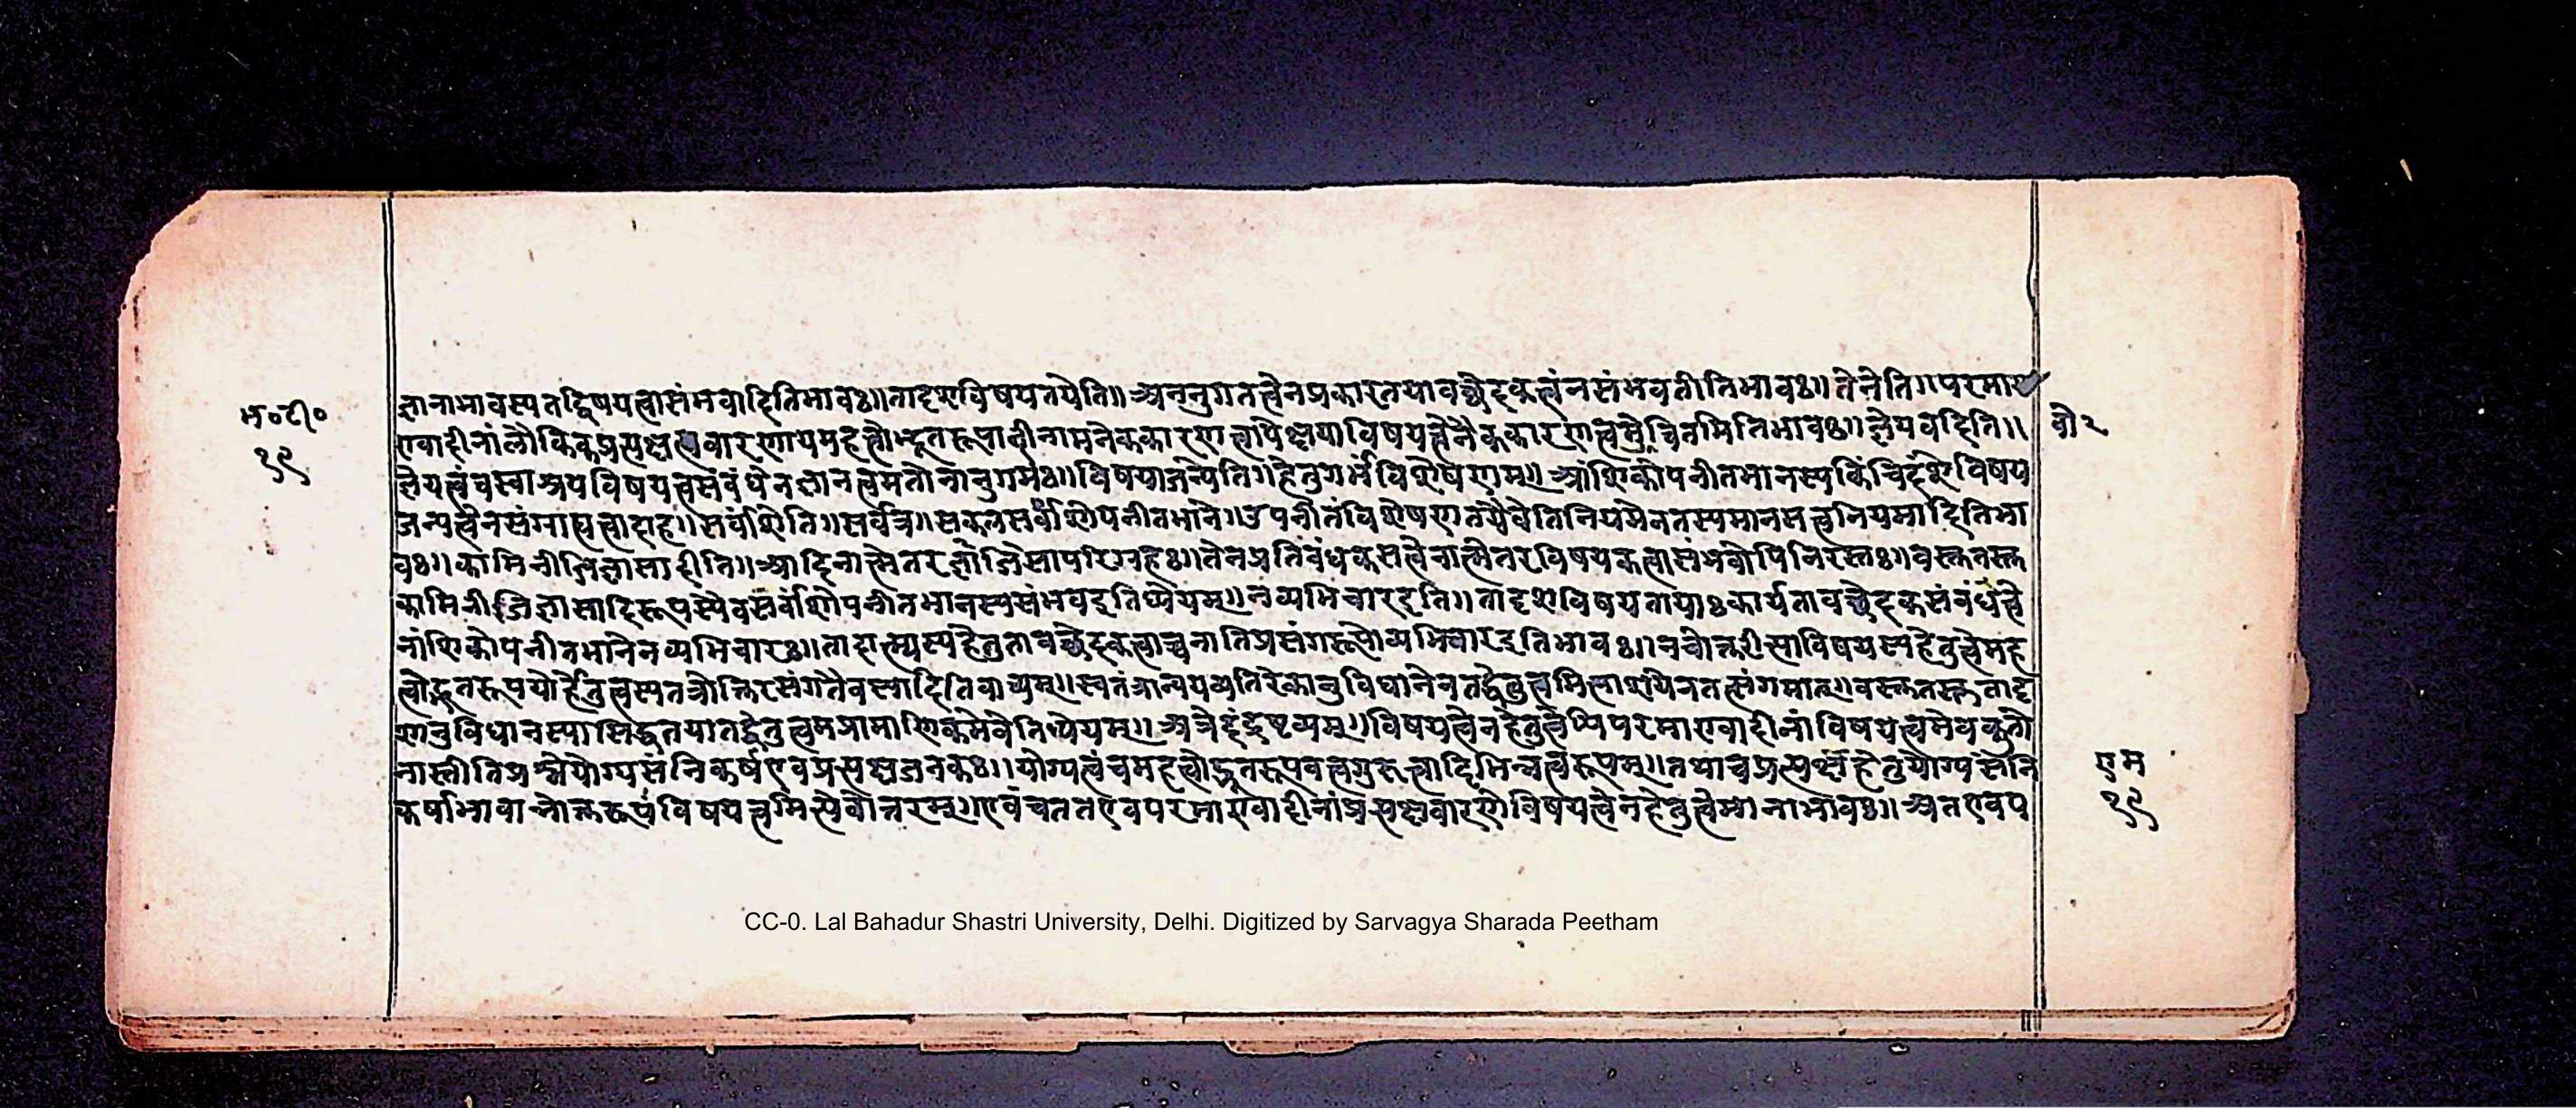 म॰टी॰
१९
ज्ञानाभावस्यतद्विषयत्वासंभवादितिभावः॥तादृशविषयतयेति॥अननुगतत्वेनप्रकारतयावच्छेदकत्वंनसंभवतीतिभावः॥तेनेति॥परमा
ण्वादीनांलौकिकप्रत्यक्षत्ववारणायमहत्वोद्भूतरूपादीनामनेककारणत्वापेक्षयाविषयत्वेनैककारणत्वमुचितमितिभावः॥ज्ञेयवदिति॥
वौ२
ज्ञेयत्वंचस्वाश्रयविषयत्वसंबंधेनज्ञानत्वमतोनाननुगमः॥विषयाजन्येति॥हेतुगर्भविशेषणम्॥आंशिकोपनीतभानस्यकिंचिदंशेविषय
जन्यत्वेनसंग्राह्यत्वादाह॥सर्वांशेति॥सर्वत्र॥सकलसर्वांशोपनीतभाने॥उपनीतंविशेषणतयैवेतिनियमेनतस्यमानसत्वनियमादितिभा
वः॥कामिनीजिज्ञासादीति॥आदिनात्मेतरज्ञाजिसापरिग्रहः॥तेनप्रतिबंधकसत्वेनात्मेतरविषयकत्वासंभवोपिनिरस्तः॥वस्तुतस्तु
कामिनीजिज्ञासादिरूपस्यैवसर्वांशोपनीतभानस्यसंभवइतिध्येयम्॥नव्यभिचारइति॥तादृशविषयतायाःकार्यतावच्छेदकसंबंधत्वे
नांशिकोपनीतभानेनव्यभिचारः॥तादात्म्यस्यहेतुतावच्छेदकत्वाच्चनातिप्रसंगरूपोव्यभिचारइतिभावः॥नचोक्तरीत्याविषयस्यहेतुत्वेमह
त्वोद्भूतरूपयोर्हेतुत्वस्यतत्रोक्तिरसंगतैवस्यादितिवाच्यम्॥स्वतंत्रान्वयव्यतिरेकानुविधानेनतद्धेतुत्वमित्याशयेनतत्संगमात्॥वस्तुतस्तुतादृ
शानुविधानस्यासिद्धतयातद्धेतुत्वमप्रामाणिकमेवेतिध्येयम्॥अत्रेदंद्रष्टव्यम्॥विषयत्वेनहेतुत्वेपिपरमाण्वादीनांविषयत्वमेवकुतो
नास्तीतिप्रश्नेयोग्यसंनिकर्षएवप्रत्यक्षजनकः॥योग्यत्वंचमहत्वोद्भूतरूपवत्वगुरुत्वादिभिन्नत्वरूपम्॥तथाचप्रत्यक्षहेतुयोग्यसंनि
कर्षाभावान्नोक्तरूपंविषयत्वमित्येवोत्तरम्॥एवंचततएवपरमाण्वादीनांप्रत्यक्षवारणेविषयत्वेनहेतुत्वेमानाभावः॥अतएवप
राम
१९
CC-0. Lal Bahadur Shastri University, Delhi. Digitized by Sarvagya Sharada Peetham